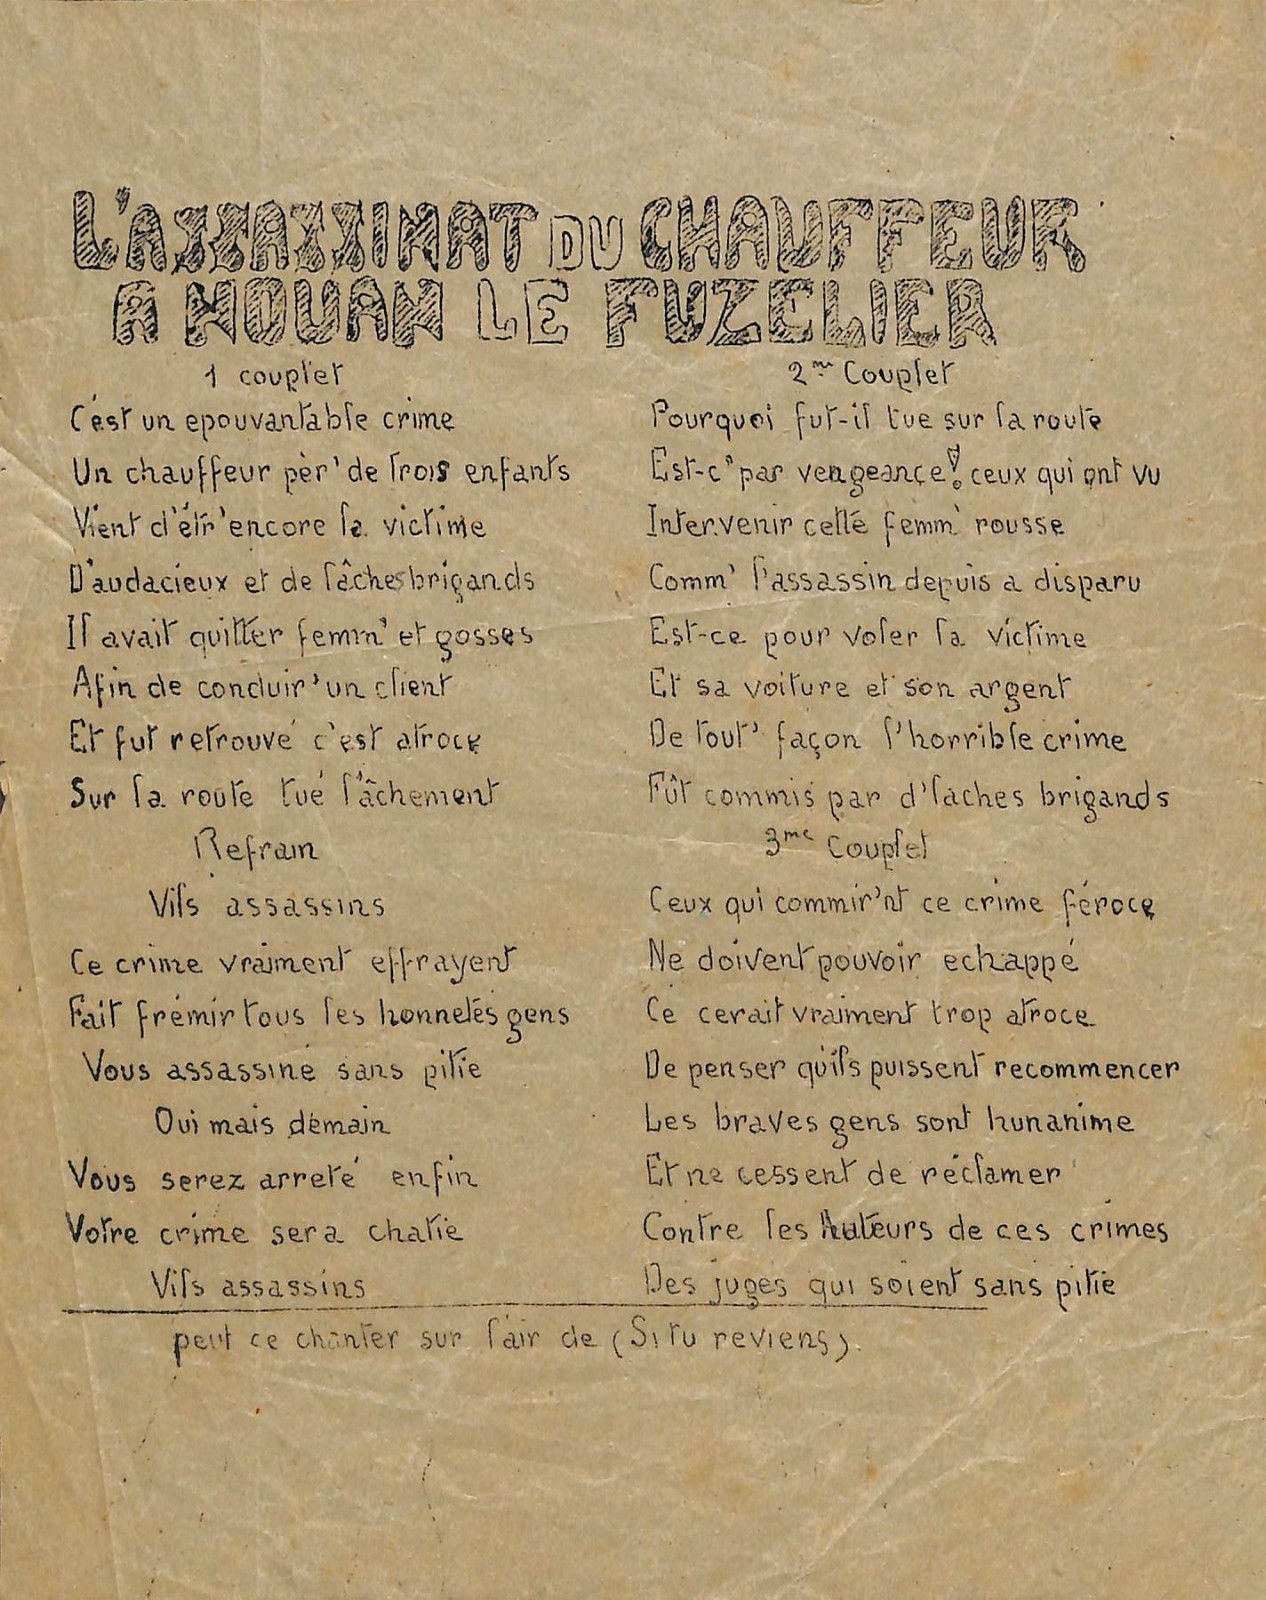 L'ASSASSINAT DU CHAUFFEUR
A NOUAN LE FUZELIER
1 couplet
C'est un epouvantable crime
Un chauffeur pèr' de trois enfants
Vient d'êtr' encore la victime
D'audacieux et de lâches brigands
Il avait quitter femm' et gosses
Afin de conduir' un client
Et fut retrouvé c'est atroce
Sur la route tué lâchement
Refrain
Vils assassins
Ce crime vraiment effrayent
Fait frémir tous les honnetes gens
Vous assassiné sans pitie
Oui mais demain
Vous serez arreté enfin
Votre crime sera chatie
Vils assassins
2me Couplet
Pourquoi fut-il tue sur la route
Est-c' par vengeance! ceux qui ont vu
Intervenir cette femm' rousse
Comm' l'assassin depuis a disparu
Est-ce pour voler la victime
Et sa voiture et son argent
De tout' façon l'horrible crime
Fût commis par d'laches brigands
3me Couplet
Ceux qui commir'nt ce crime féroce
Ne doivent pouvoir echappé
Ce cerait vraiment trop atroce
De penser qu'ils puissent recommencer
Les braves gens sont hunanime
Et ne cessent de réclamer
Contre les Auteurs de ces crimes
Des juges qui soient sans pitie
peut ce chanter sur l'air de (Si tu reviens).